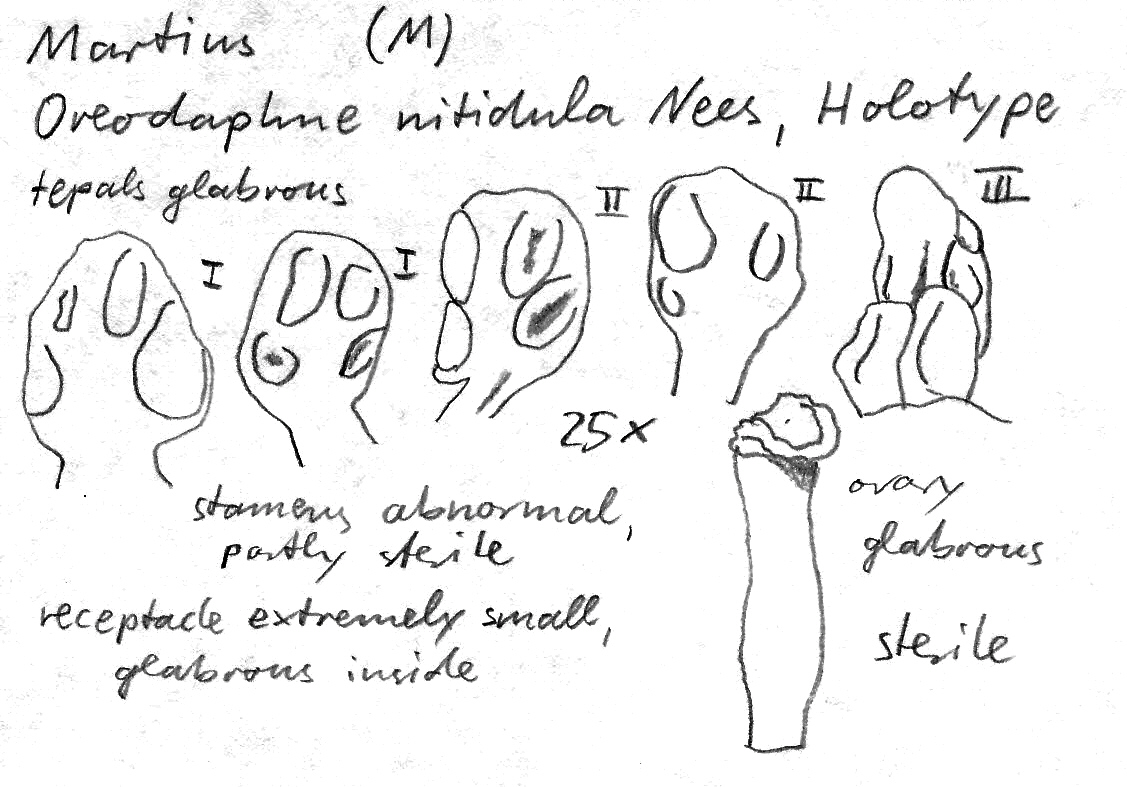 Martius (M)
Oreodaphne nitidula Nees, Holotype
tepals glabrous
I
I
II
II
III
25x
stamens abnormal,
partly sterile
receptacle extremely small,
glabrous inside
ovary
glabrous
sterile